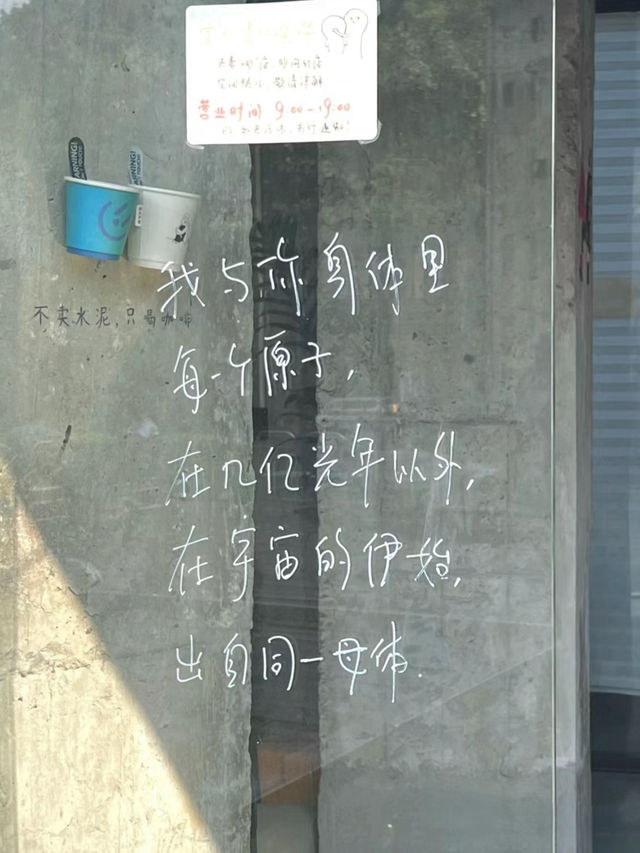 空间狭小，敬请谅解
营业时间 9:00-19:00
WARNING!
WARNING!
不卖水泥，只喝咖啡
我与你身体里
每一个原子，
在几亿光年以外，
在宇宙的伊始，
出自同一母体.